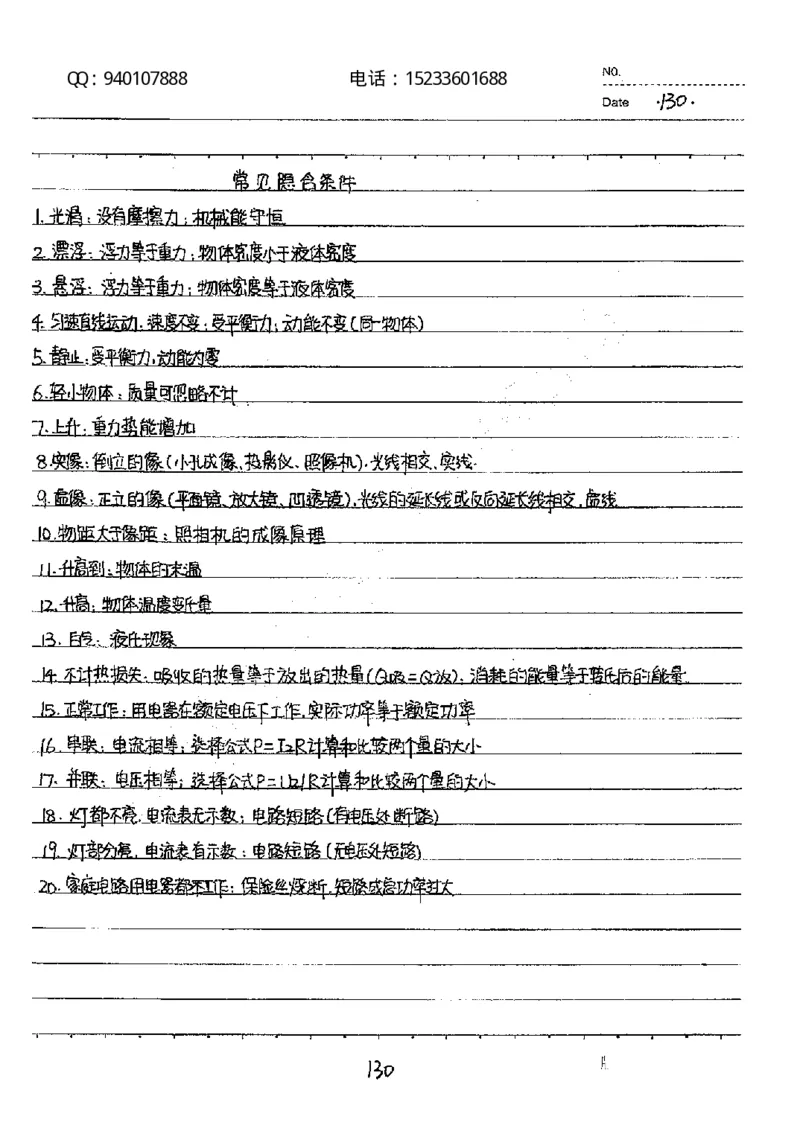 QQ：940107888 电话：15233601688 NO.
Date ·130·
常见隐含条件
1. 光滑：没有摩擦力；机械能守恒
2. 漂浮：浮力等于重力；物体密度小于液体密度
3. 悬浮：浮力等于重力；物体密度等于液体密度
4. 匀速直线运动：速度不变；受平衡力；动能不变(同一物体)
5. 静止：受平衡力,动能为零
6. 轻小物体：质量可忽略不计
7. 上升：重力势能增加
8. 实像：倒立的像(小孔成像、投影仪、照像机)，光线相交、实线.
9. 虚像：正立的像(平面镜、放大镜、凹透镜),光线的延长线或反向延长线相交,虚线
10. 物距大于像距：照相机的成像原理
11. 升高到：物体的末温
12. 升高：物体温度变化量
13. 白气：液化现象
14. 不计热损失：吸收的热量等于放出的热量(Q吸=Q放)；消耗的能量等于转化后的能量.
15. 正常工作：用电器在额定电压下工作,实际功率等于额定功率
16. 串联：电流相等；选择公式P=I2R计算和比较两个量的大小
17. 并联：电压相等；选择公式P=U2/R计算和比较两个量的大小
18. 灯都不亮,电流表无示数：电路短路(有电压处断路)
19. 灯部分亮,电流表有示数：电路短路(无电压处短路)
20. 家庭电路用电器都不工作：保险丝烧断,短路或总功率过大
130